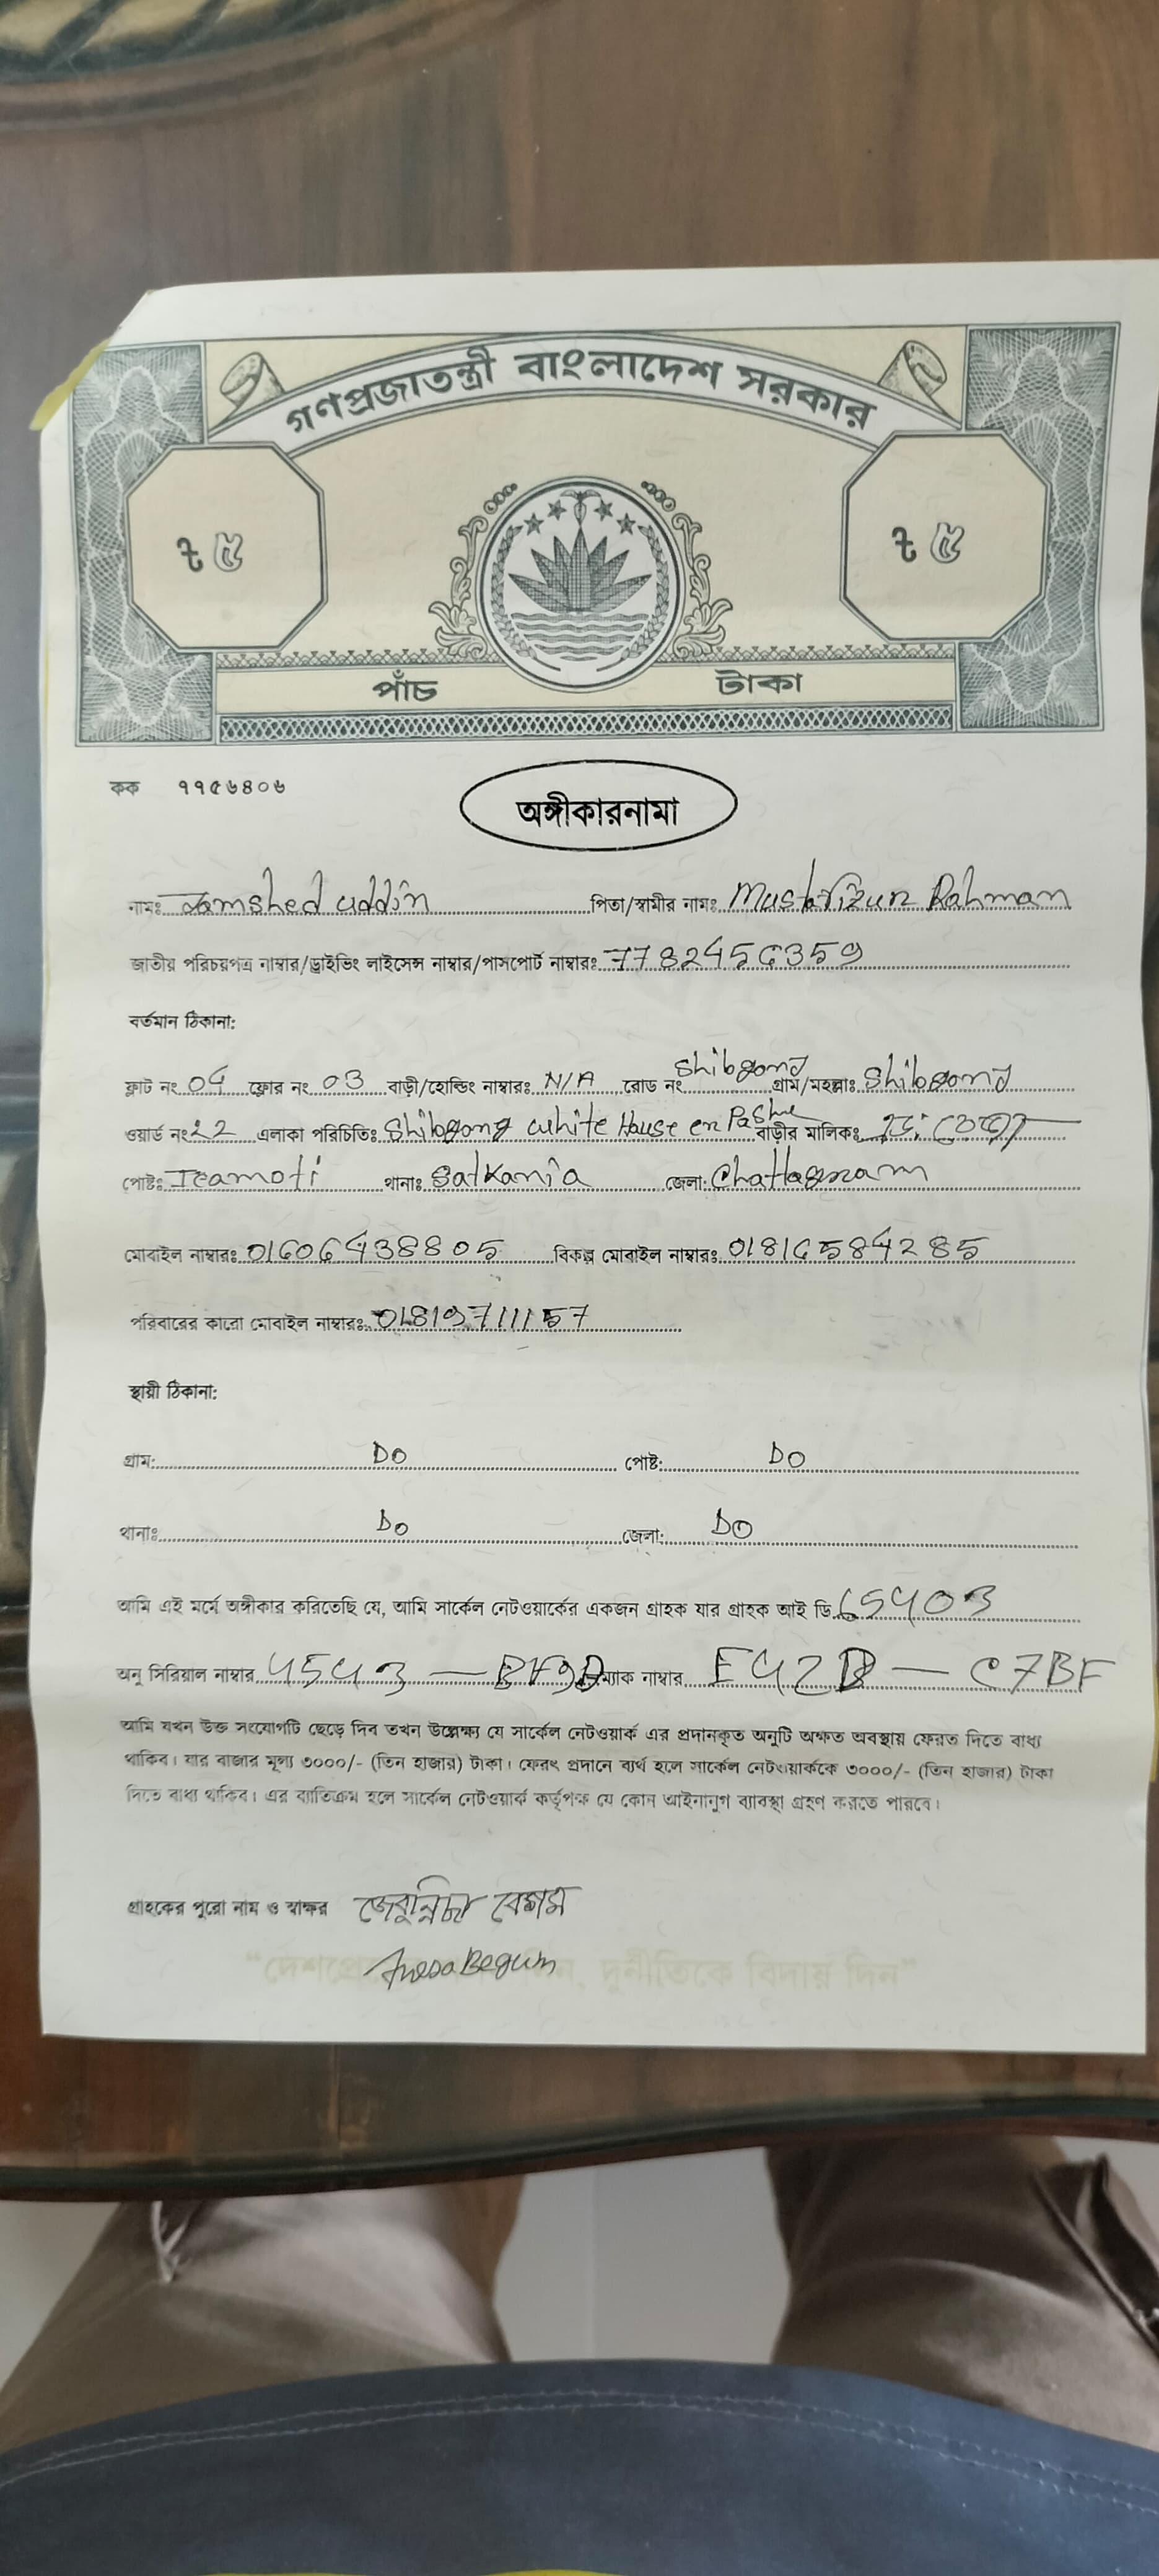 গণপ্রজাতন্ত্রী বাংলাদেশ সরকার
৳ ৫ ৳ ৫
পাঁচ টাকা
কক ৭৭৫৬৪০৬
অঙ্গীকারনামা
নামঃ Jamshed uddin পিতা/স্বামীর নামঃ Mustafizur Rahman
জাতীয় পরিচয়পত্র নাম্বার/ড্রাইভিং লাইসেন্স নাম্বার/পাসপোর্ট নাম্বারঃ 7782456359
বর্তমান ঠিকানা:
ফ্লাট নং 04 ফ্লোর নং 03 বাড়ী/হোল্ডিং নাম্বারঃ N/A রোড নং Shibgonj গ্রাম/মহল্লাঃ Shibgonj
ওয়ার্ড নং 22 এলাকা পরিচিতিঃ Shibgong white House er Pashe বাড়ীর মালিকঃ
পোষ্টঃ থানাঃ Satkania জেলা: Chattagram
মোবাইল নাম্বারঃ 01606438805 বিকল্প মোবাইল নাম্বারঃ 01816584285
পরিবারের কারো মোবাইল নাম্বারঃ 01819711157
স্থায়ী ঠিকানা:
গ্রাম: DO পোষ্ট: DO
থানাঃ Do জেলা: DO
আমি এই মর্মে অঙ্গীকার করিতেছি যে, আমি সার্কেল নেটওয়ার্কের একজন গ্রাহক যার গ্রাহক আই ডি 65403
অনু সিরিয়াল নাম্বার 4543 — BF9D ম্যাক নাম্বার E42D — C7BF
আমি যখন উক্ত সংযোগটি ছেড়ে দিব তখন উল্লেক্ষ্য যে সার্কেল নেটওয়ার্ক এর প্রদানকৃত অনুটি অক্ষত অবস্থায় ফেরত দিতে বাধ্য
থাকিব। যার বাজার মূল্য ৩০০০/- (তিন হাজার) টাকা। ফেরৎ প্রদানে ব্যর্থ হলে সার্কেল নেটওয়ার্ককে ৩০০০/- (তিন হাজার) টাকা
দিতে বাধ্য থাকিব। এর ব্যাতিক্রম হলে সার্কেল নেটওয়ার্ক কর্তৃপক্ষ যে কোন আইনানুগ ব্যাবস্থা গ্রহণ করতে পারবে।
গ্রাহকের পুরো নাম ও স্বাক্ষর জেবুন্নিছা বেগম
Begum
দুর্নীতিকে বিদায় দিন"